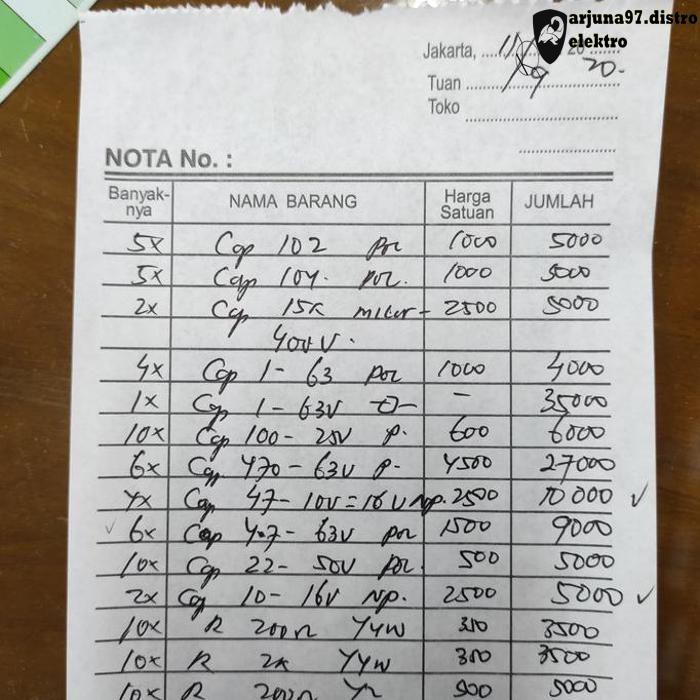 arjuna97.distro
elektro
Jakarta, 11/9 20 20.
Tuan
Toko
NOTA No. :
Banyak-nya NAMA BARANG Harga Satuan JUMLAH
5x Cap 102 por 1000 5000
5x Cap 104. por. 1000 5000
2x Cap 15k 2500 5000
400V.
4x Cap 1-63 por 1000 4000
1x Cap 1-63V - 35000
10x Cap 100-25V p. 600 6000
6x Cap 470-63V p- 4500 27000
4x Cap 47-10V=16V Np. 2500 10000 ✓
✓ 6x Cap 4.7-63V por 1500 9000
10x Cap 22-50V por. 500 5000
2x Cap 10-16V Np. 2500 5000 ✓
10x R 200Ω YYW 350 3500
10x R 2k YYW 350 3500
10x R 500 5000